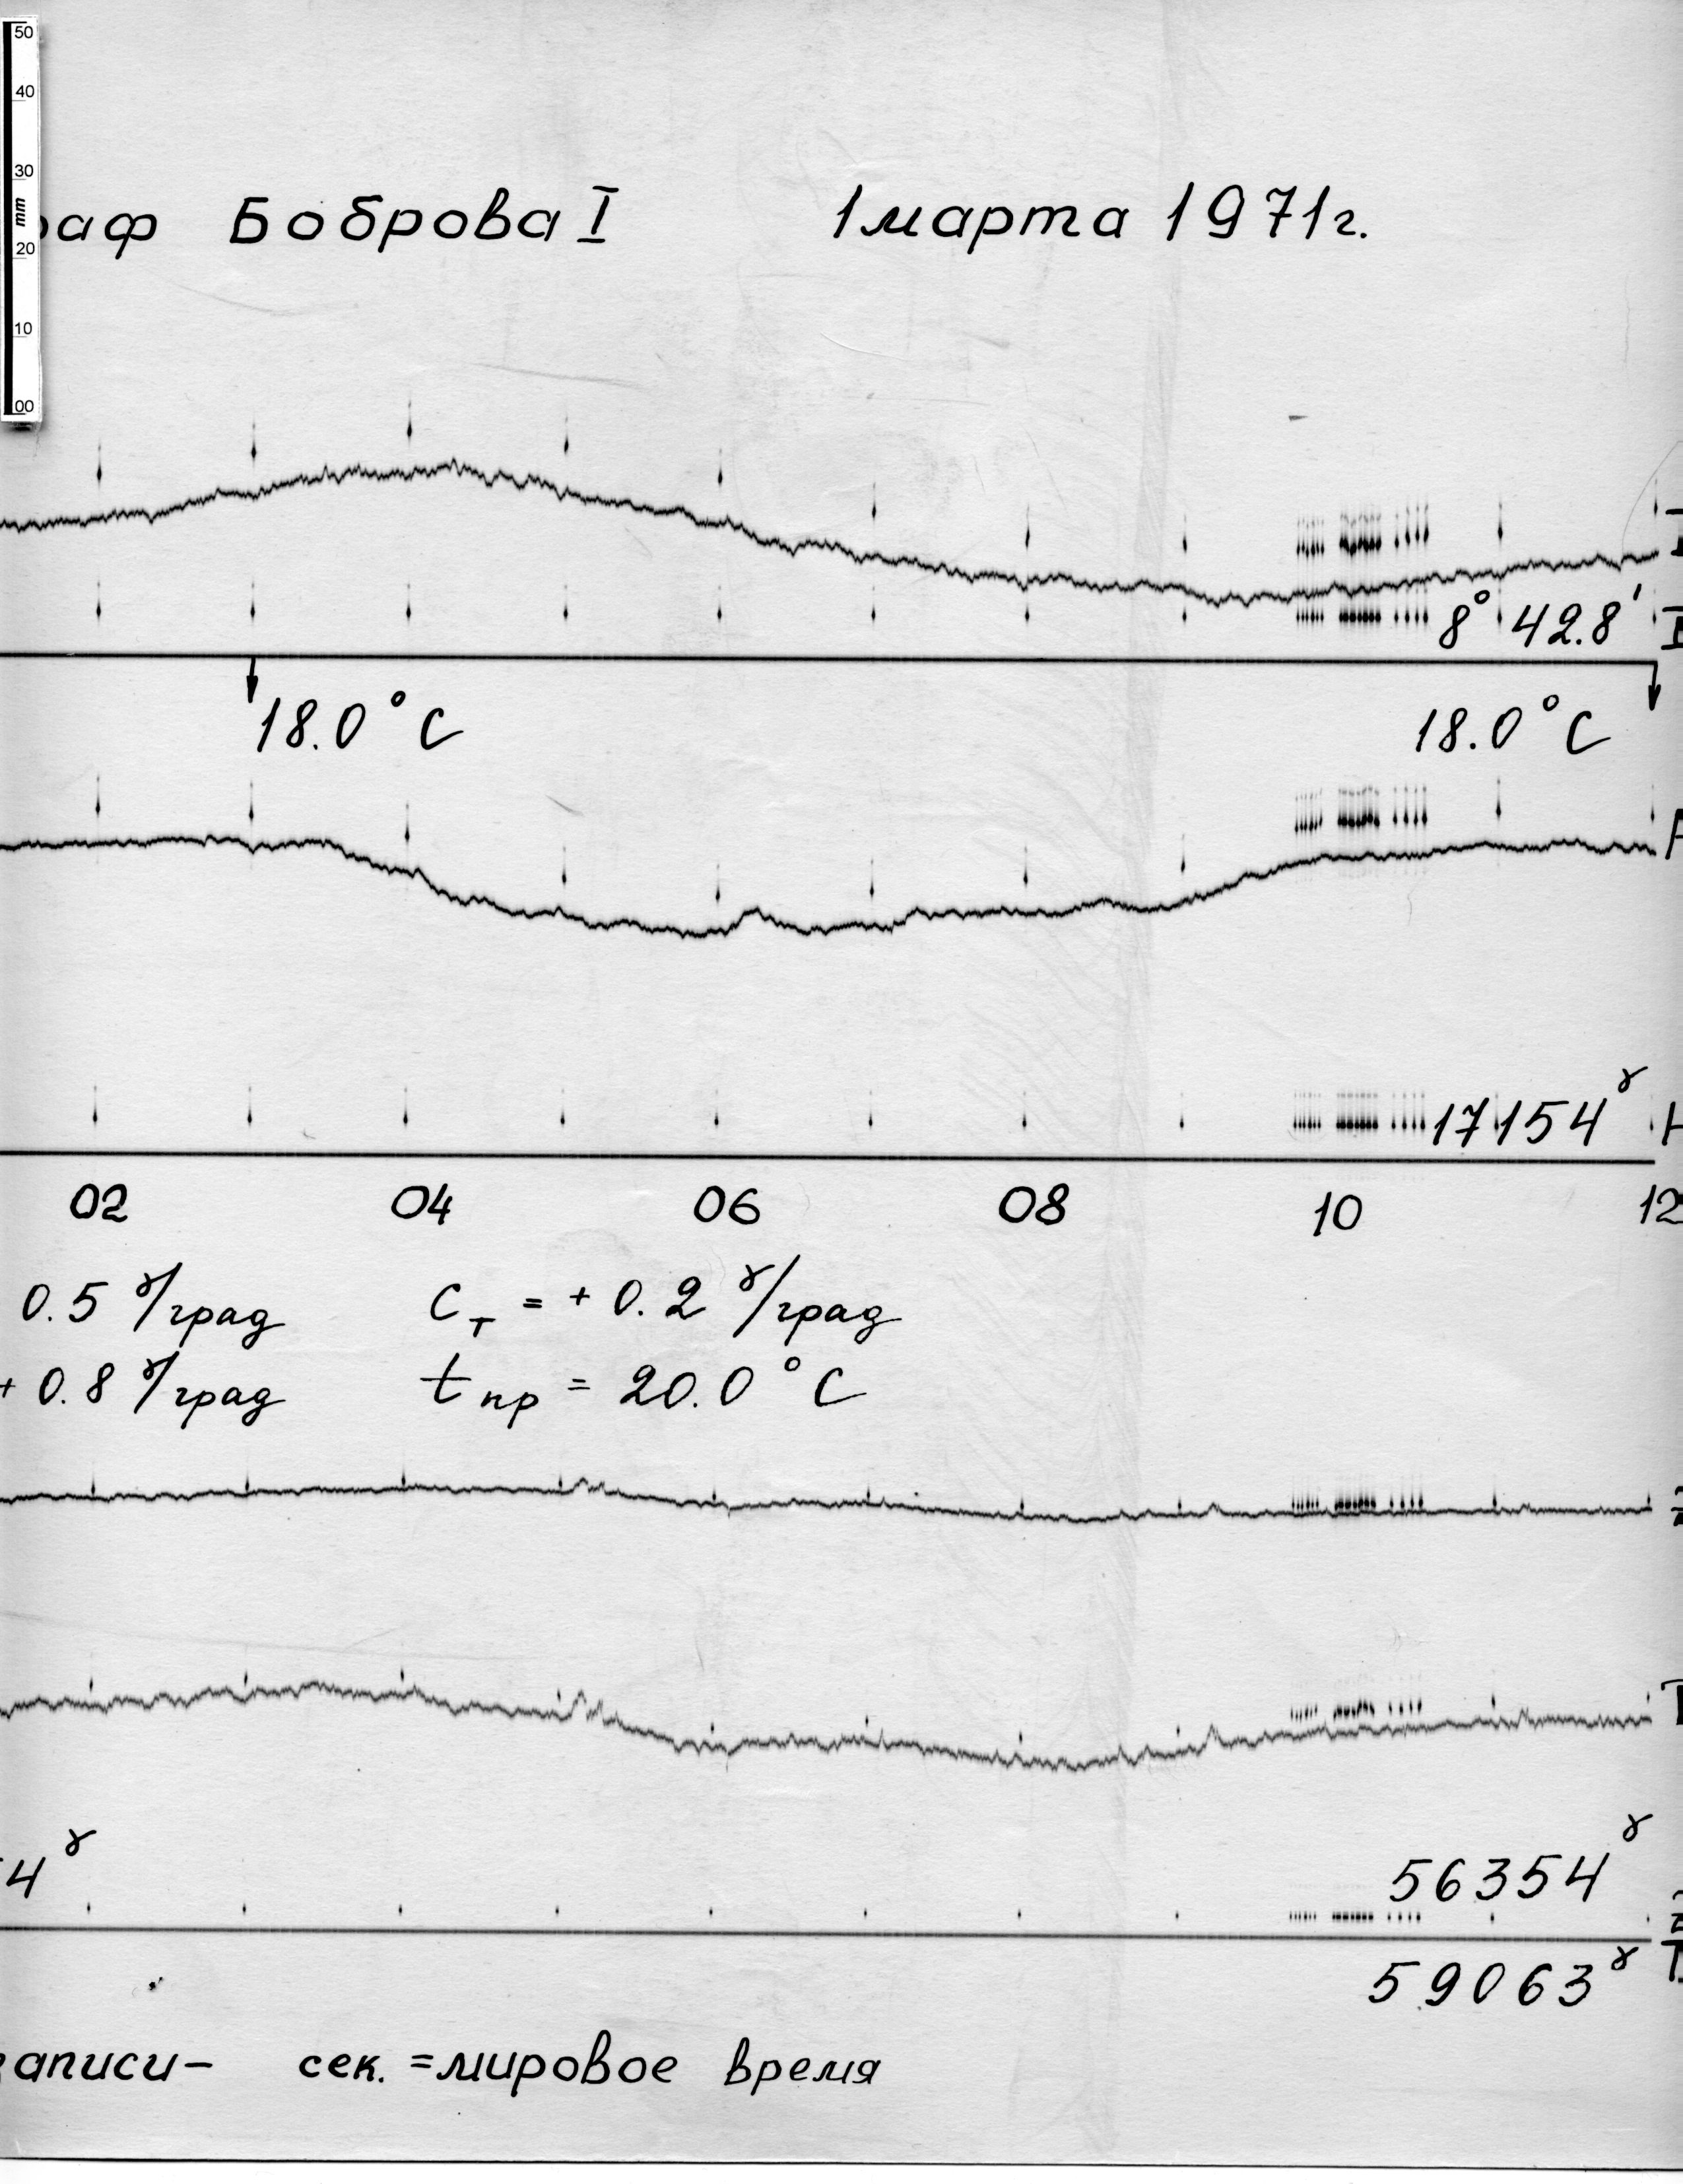 50
40
30
mm
20
10
00
раф Боброва I 1 марта 1971г.
8° 42.8'
18.0 °C 18.0 °C
17154 γ
02 04 06 08 10 12
0.5 γ/град Cт = + 0.2 γ/град
+ 0.8 γ/град tпр = 20.0 °C
4 γ 56354 γ
59063 γ
записи- сек. =мировое время